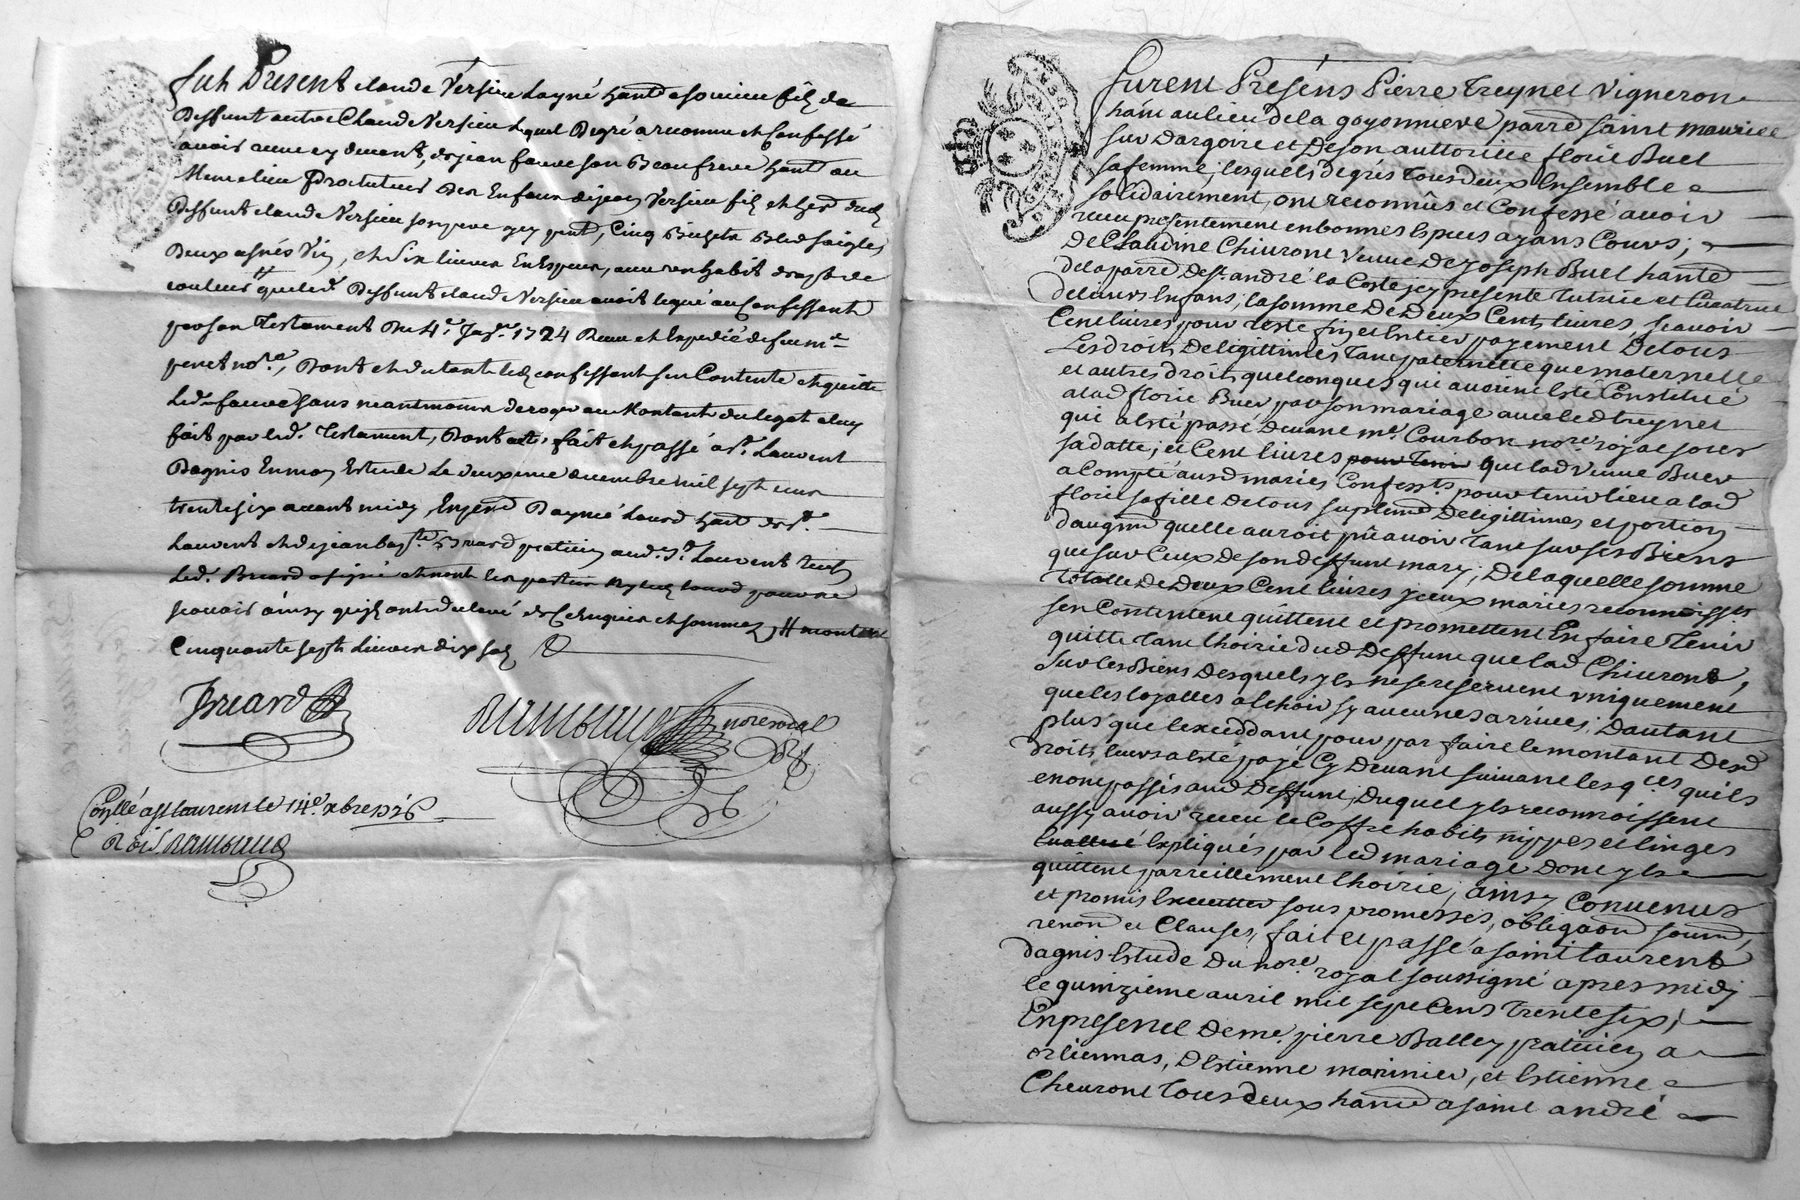 Fut Present claude Versieu Layné hant a souvieu fils de
Deffunt autre Claude Versieu Lequel Degré a reconnu et Confessé
avoir receu cy devant, de jean fauve son Beaufrere hant au
Meme lieu Des Enfans de jean Versieu fils et her dud
Deffunt claude Versieu son pere Cinq Bichets Bled saigle,
Deux asnés Vin, et Six livres En Especes, avec un habit drap de
couleur # que led. Deffunt claude Versieu avoit legué au Confessant
par son Testament Du 4e. 1724 Receu et Expedié de feu me
peret nore., Dont et du tout led confessant sen Contente et quitte
Led. fauve sans neantmoins deroger au Montant du legat a luy
fait par led. Testament, Dont acte, fait et passé a st. Laurent
Dagnis En mon Estude Le deuxieme decembre mil sept cens
trente six avant midy, En present hant de st.
Laurent et de jean bapte Bruard praticien aud. st. Laurent
Led. Bruard a signé et non les parties ny led pour ne
scavoir ainsy quils ont declaré de Ce Enquis et sommes, # montant
Cinquante sept Livres dix sols
Bruard
Rambaud nore royal
Con.llé a st laurent le 14e. xbre 1736
R Rambaud
Furent Presens Pierre Treynet Vigneron
hant au lieu de la goyonniere parre saint maurice
sur dargoire et De son authorité florie Buel
sa femme, lesquels degrés Tous deux Ensemble
solidairement, ont reconnus et Confessé avoir
receu presentement en bonnes Especes ayans Cours;
De Claudine Chieuront Veuve De Joseph Buel hante
de la parre de st. andré la Coste jcy presente Tutrice et Curatrice
de leurs Enfans, la somme De Deux Cents livres, scavoir
Cent livres pour reste fin et Entier payement De tous
Les droits De legittimes Tant paternelle que maternelle
et autres droits quelconques qui avoient Esté Constitué
a lad florie Buel par son mariage avec led treynet
qui a Esté passé devant me. Courbon nore. royal sous
sa datte; et Cent livres pour Tenir que lad veuve Buel
a Compté ausd mariés Confessts. pour tenir lieu a lad
florie sa fille De tous suplement De legittimes et portion
daugmt quelle auroit pû avoir Tant sur ses Biens
que sur Ceux De son deffunt mary; De laquelle somme
Totalle De Deux Cent livres jceux mariés reconnoissts.
sen Contentent quittent et promettent En faire Tenir
quitte Tant lhoirie dud Deffunt que lad Chieuront,
sur les Biens Desquels yls ne se reservent uniquement
que les loyalles a Echoir sy aucunes arrivés; Dautant
plus que lexceddant pour par faire le montant Desd
Droits leurs a Esté payé Cy Devant suivant les qces quils
en ont passés aud Deffunt, Duquel yls reconnoissent
aussy avoir receu le Coffre habits nippes et linges
Expliqués par led mariage Dont yls
quittent parreillement lhoirie; ainsy Convenus
et promis Executter sous promesses, obligaon soumn,
renon et Clauses, fait et passé a saint laurent
dagnis Estude Du nore. royal soussigné apres midy
le quinzieme avril mil sept Cens Trente six;
En presence De me. pierre Balley praticien a
orliennas, DEstienne marinier, et Estienne
Cheuront Tous deux hants a saint andré